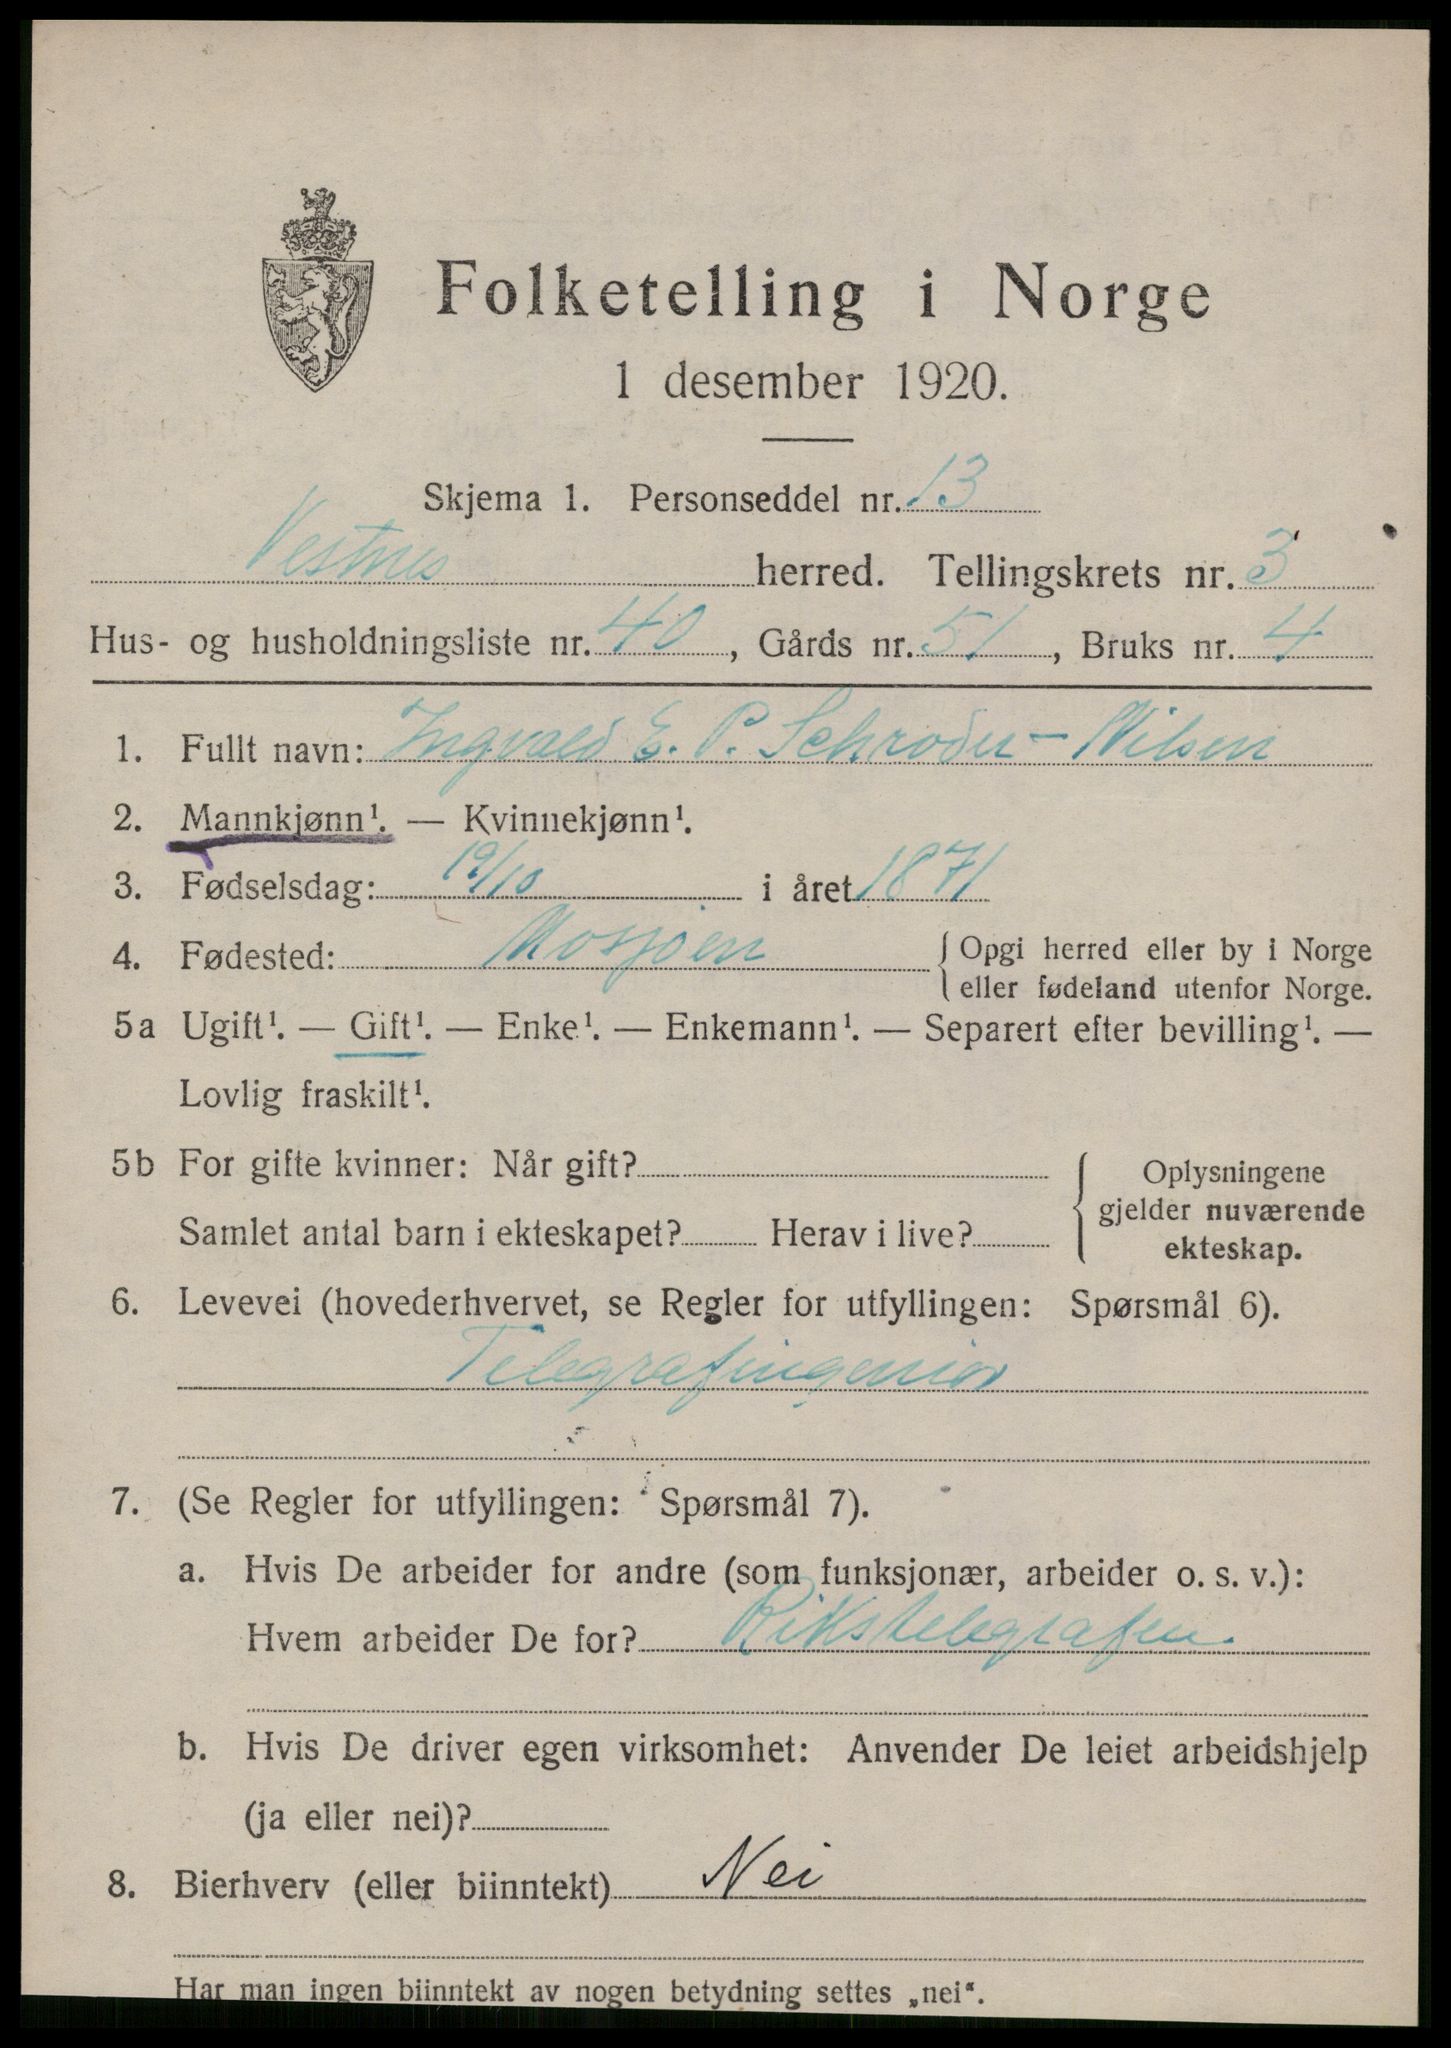 Folketelling i Norge
1 desember 1920.
Skjema 1. Personseddel nr. 13
Vestnes herred. Tellingskrets nr. 3
Hus- og husholdningsliste nr. 40, Gårds nr. 51, Bruks nr. 4
1. Fullt navn: Ingvald E. P. Schrøder-Nilsen
2. Mannkjønn¹. — Kvinnekjønn¹.
3. Fødselsdag: 19/10 i året 1871
4. Fødested: Mosjøen { Opgi herred eller by i Norge
eller fødeland utenfor Norge.
5a Ugift¹. — Gift¹. — Enke¹. — Enkemann¹. — Separert efter bevilling¹. —
Lovlig fraskilt¹.
5b For gifte kvinner: Når gift?
Samlet antal barn i ekteskapet? Herav i live?
{ Oplysningene
gjelder nuværende
ekteskap.
6. Levevei (hovederhvervet, se Regler for utfyllingen: Spørsmål 6).
Telegrafingeniør
7. (Se Regler for utfyllingen: Spørsmål 7).
a. Hvis De arbeider for andre (som funksjonær, arbeider o. s. v.):
Hvem arbeider De for? Rikstelegrafen.
b. Hvis De driver egen virksomhet: Anvender De leiet arbeidshjelp
(ja eller nei)?
8. Bierhverv (eller biinntekt) Nei
Har man ingen biinntekt av nogen betydning settes „nei“.